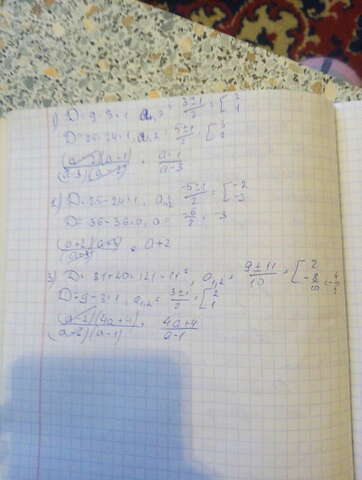 1) D = 9-8=1, a₁,₂ = (3±1)/2 = [2 1
D = 25-24=1, a₁,₂ = (5±1)/2 = [3 2
(a-2)(a-1)/(a-3)(a-2) = (a-1)/(a-3)
2) D=25-24=1, a₁,₂ = (-5±1)/2 = [-2 -3
D = 36-36=0, a = -6/2 = -3
(a+2)(a+3)/(a+3) = a+2
3) D = 81+40=121=11², a₁,₂ = (9±11)/10 = [2
D=9-8=1, a₁,₂ = (3±1)/2 = [2 1
(a-2)(4a+4)/(a-2)(a-1) = (4a+4)/(a-1)